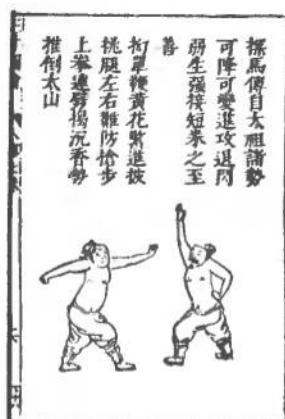 探馬傳自太祖諸勢
可降可變進攻退閃
弱生强接短拳之至
善
拗單鞭黃花緊進披
挑腿左右難防搶步
上拳連劈揭沉香勢
推倒太山